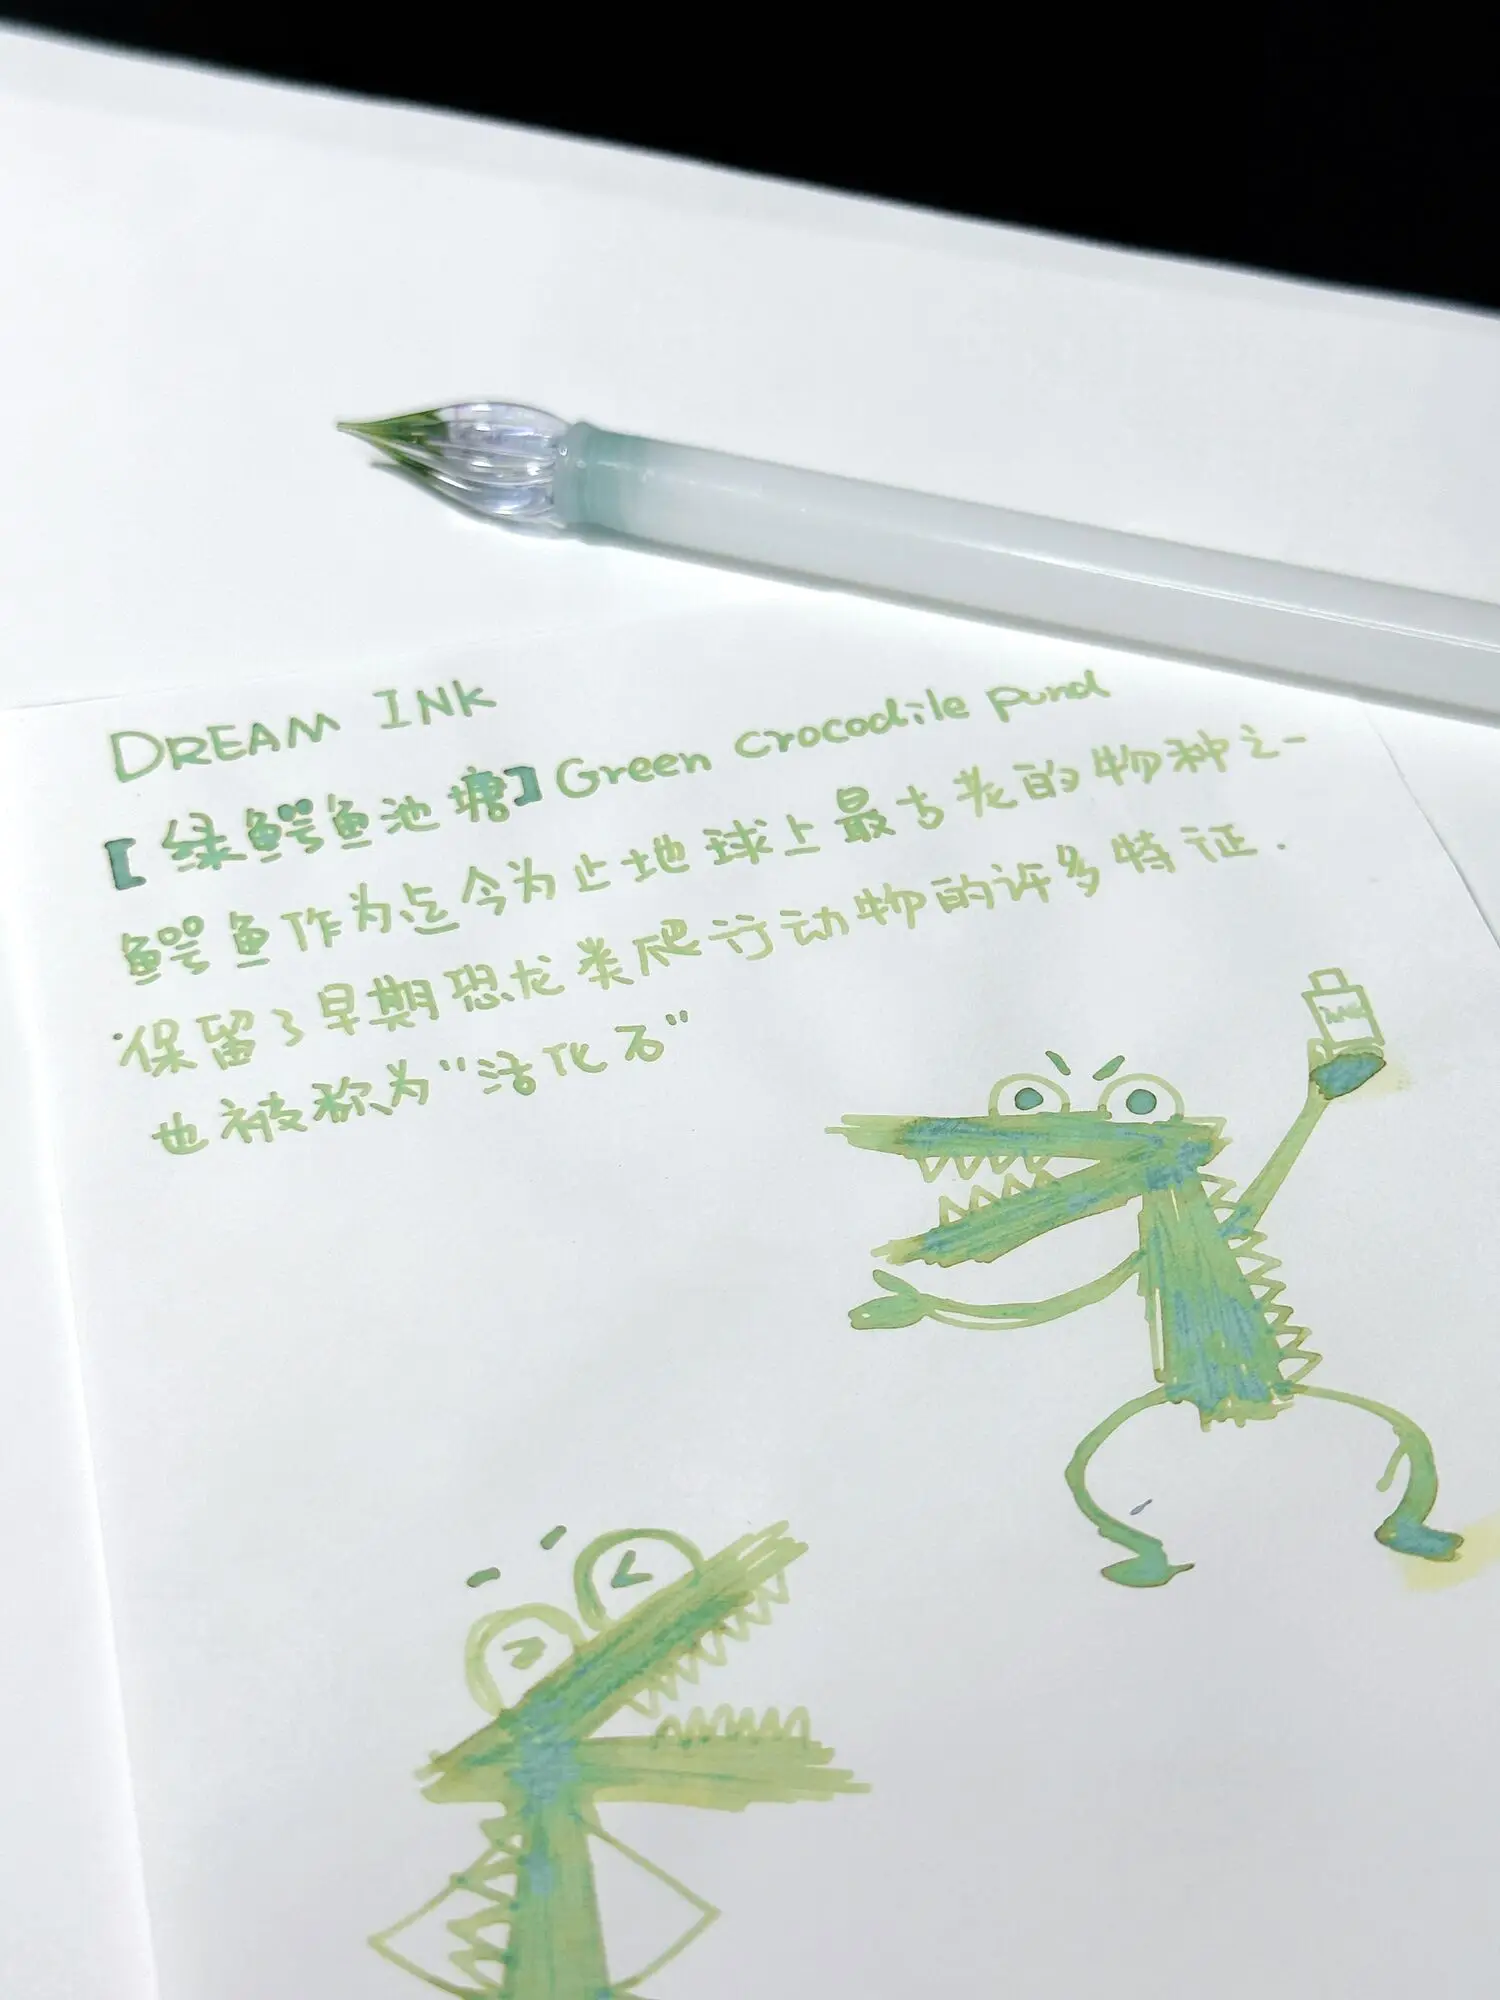 DREAM INK
【绿鳄鱼池塘】Green crocodile pund
鳄鱼作为迄今为止地球上最古老的物种之一
保留了早期恐龙类爬行动物的许多特征.
也被称为“活化石”
INK